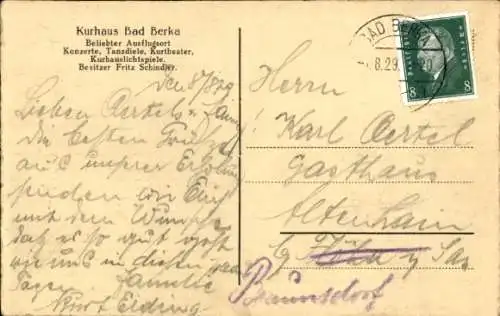 Kurhaus Bad Berka
Beliebter Ausflugsort
Konzerte, Tanzdiele, Kurtheater,
Kurhauslichtspiele.
Besitzer Fritz Schindler.
BAD BERKA
8.29
Deutsches Reich
8 8
Den 8/8 29
Lieben Oertels u. Fam
die besten Grüße
aus unserer Erholung
senden wir Euch
mit dem Wunsche
daß es so gut geht
wie uns in diesen
Tagen Familie
Kurt Elding
Herrn
Karl Oertel
Gasthaus
Altenhain
b/ Sa.
Braunsdorf